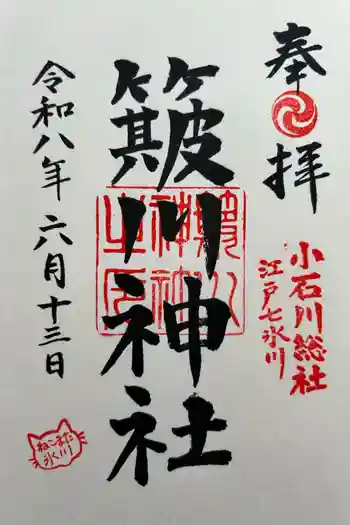 奉拝
小石川総社
江戸七氷川
簸川神社
令和八年六月十三日
ねこまた
氷川